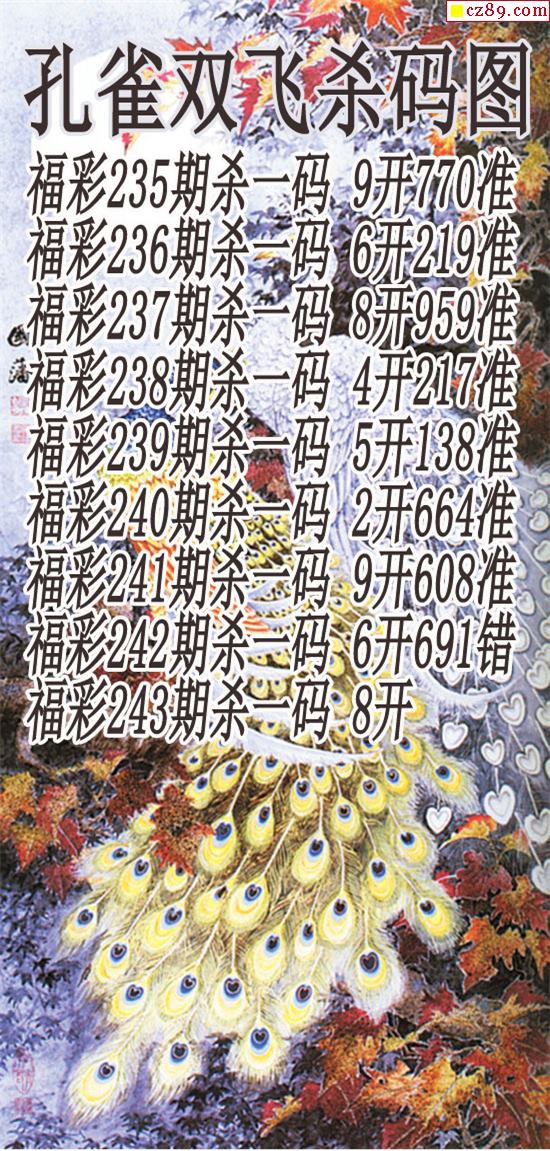 cz89.com
孔雀双飞杀码图
福彩235期杀一码 9开770准
福彩236期杀一码 6开219准
福彩237期杀一码 8开959准
福彩238期杀一码 4开217准
福彩239期杀一码 5开138准
福彩240期杀一码 2开664准
福彩241期杀一码 9开608准
福彩242期杀一码 6开691错
福彩243期杀一码 8开